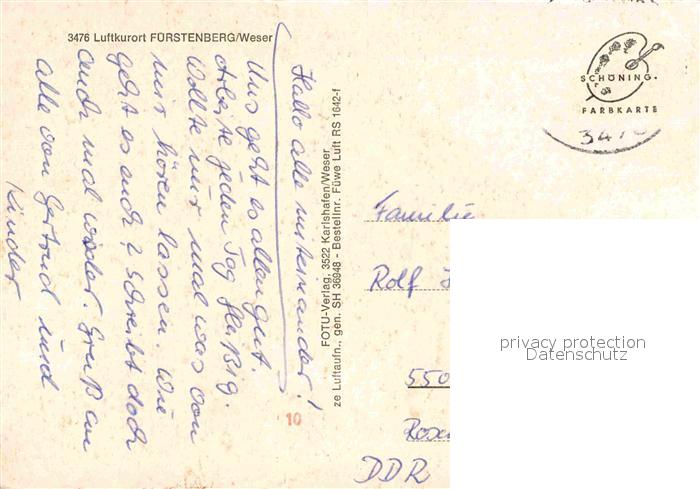 3476 Luftkurort FÜRSTENBERG/Weser
Hallo alle miteinander!
Uns geht es allen gut
Arbeite jeden Tag fleißig.
Wollte nur mal was von
mir hören lassen. Wie
geht es euch? Schreibt doch
auch mal wieder. Gruß an
alle von Gertrud und
Kinder
FOTU-Verlag, 3522 Karlshafen/Weser
ze Luftaufn., gen. SH 36948 - Bestellnr. Füwe Luft RS 1642-f
10
SCHÖNING
FARBKARTE
347
Familie
Rolf
550
DDR
privacy protection
Datenschutz